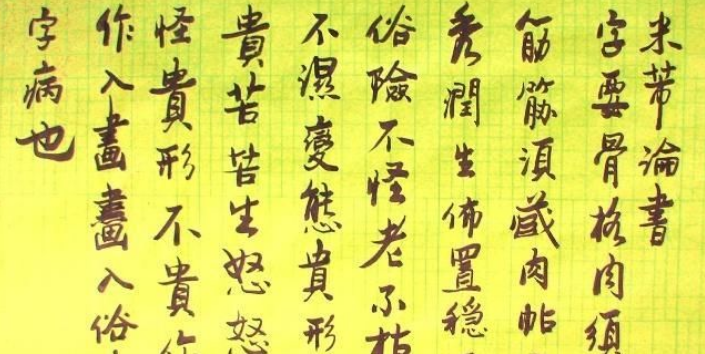 米芾論書
字要骨格肉須
筋筋須藏肉帖
秀潤生佈置穩
俗險不怪老不枯
不濕變態貴形
貴苦苦生怒怒
怪貴形不貴作
作入畫畫入俗
字病也